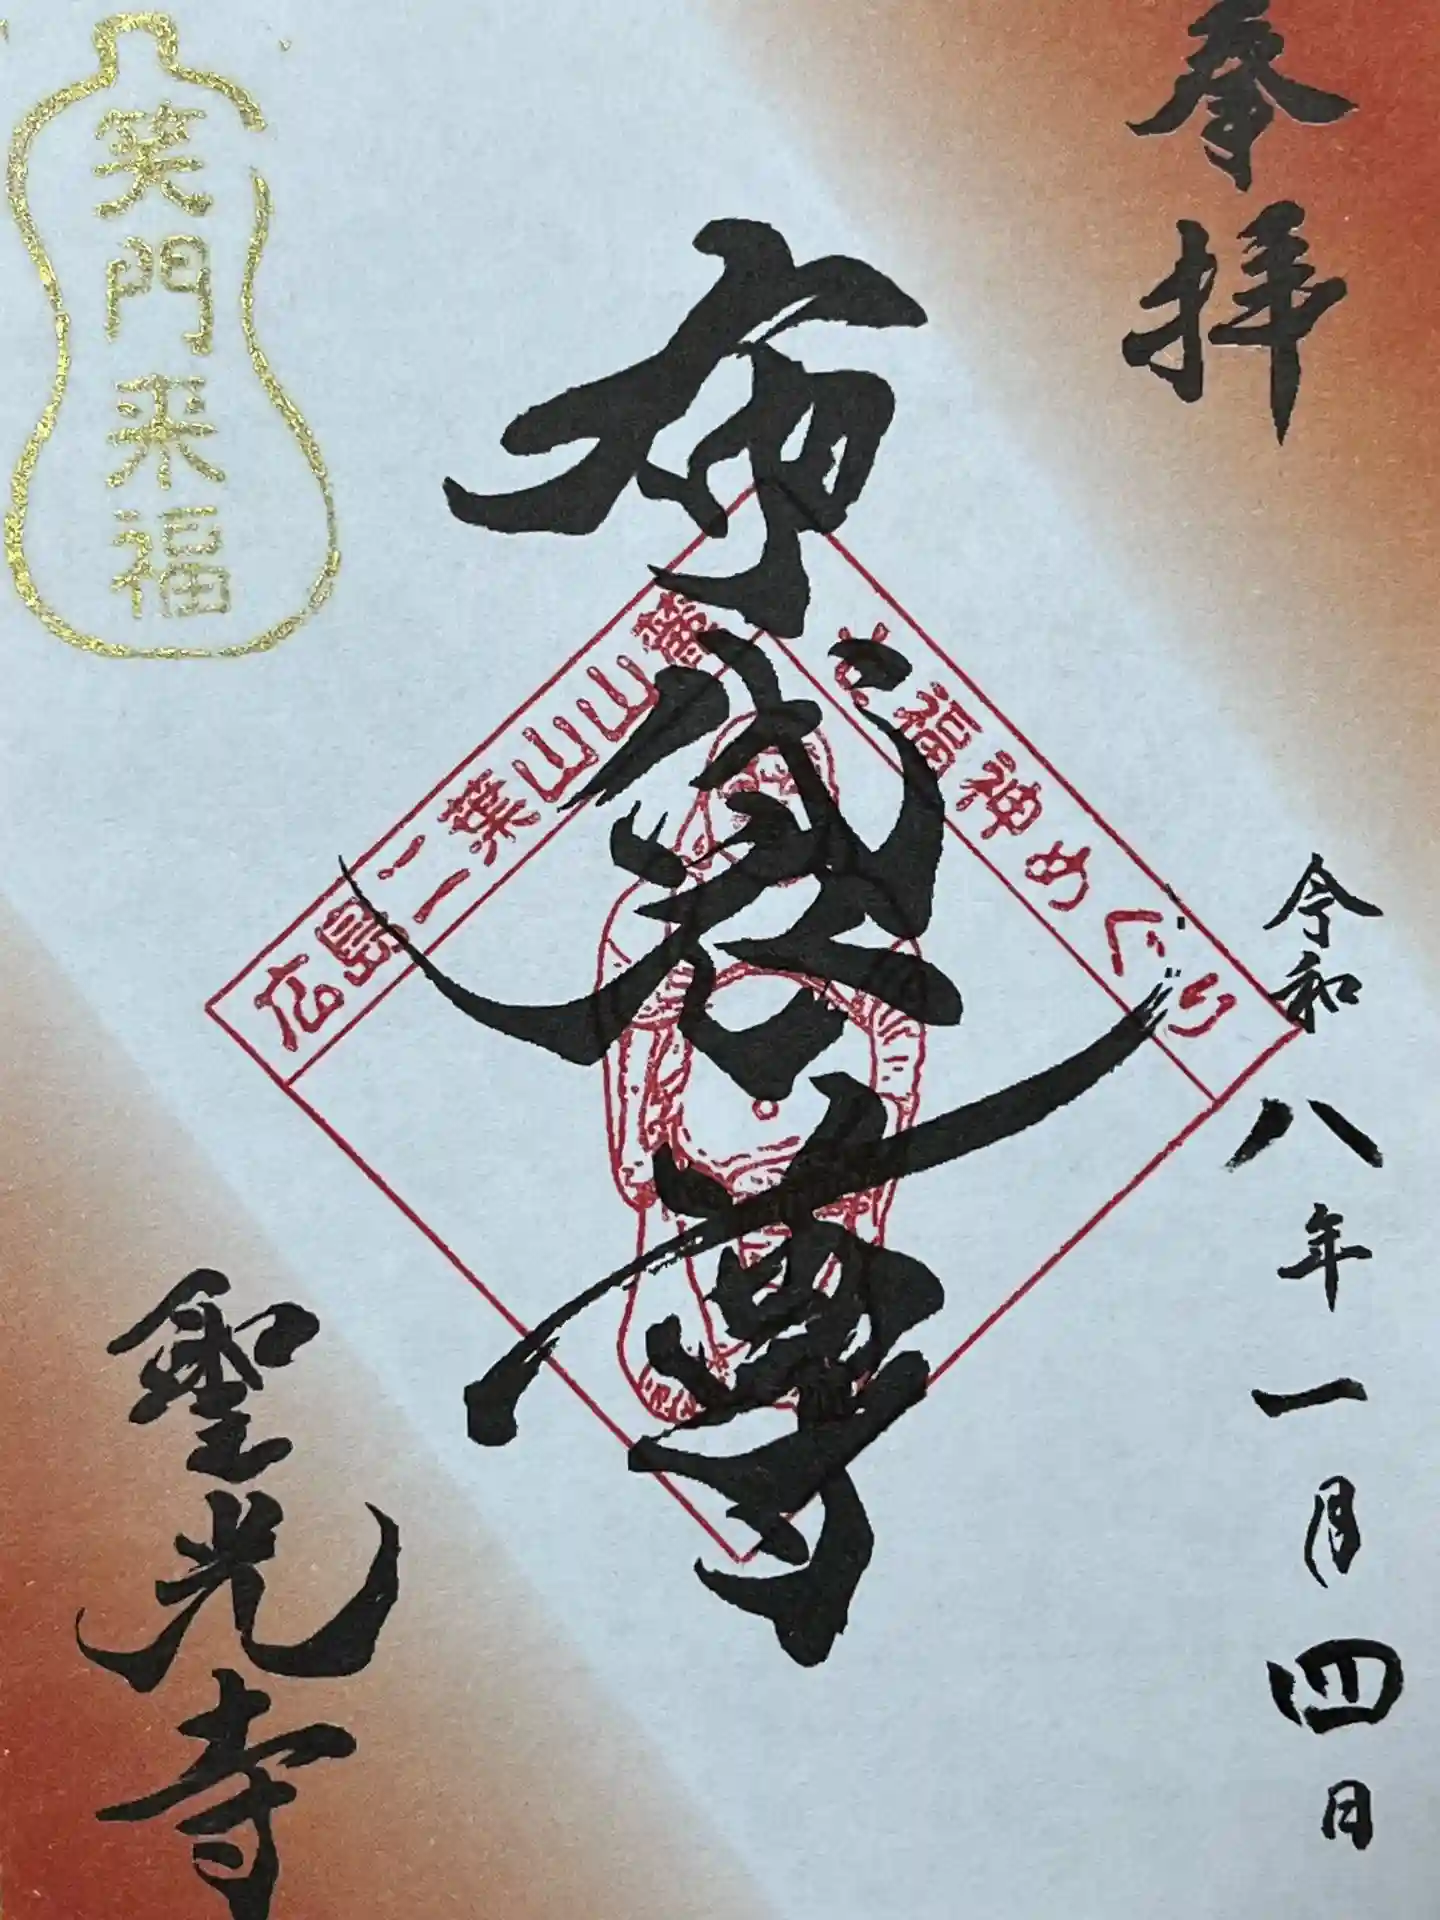 奉拝
令和八年一月四日
布袋尊
広島二葉山山麓
七福神めぐり
笑門来福
聖光寺